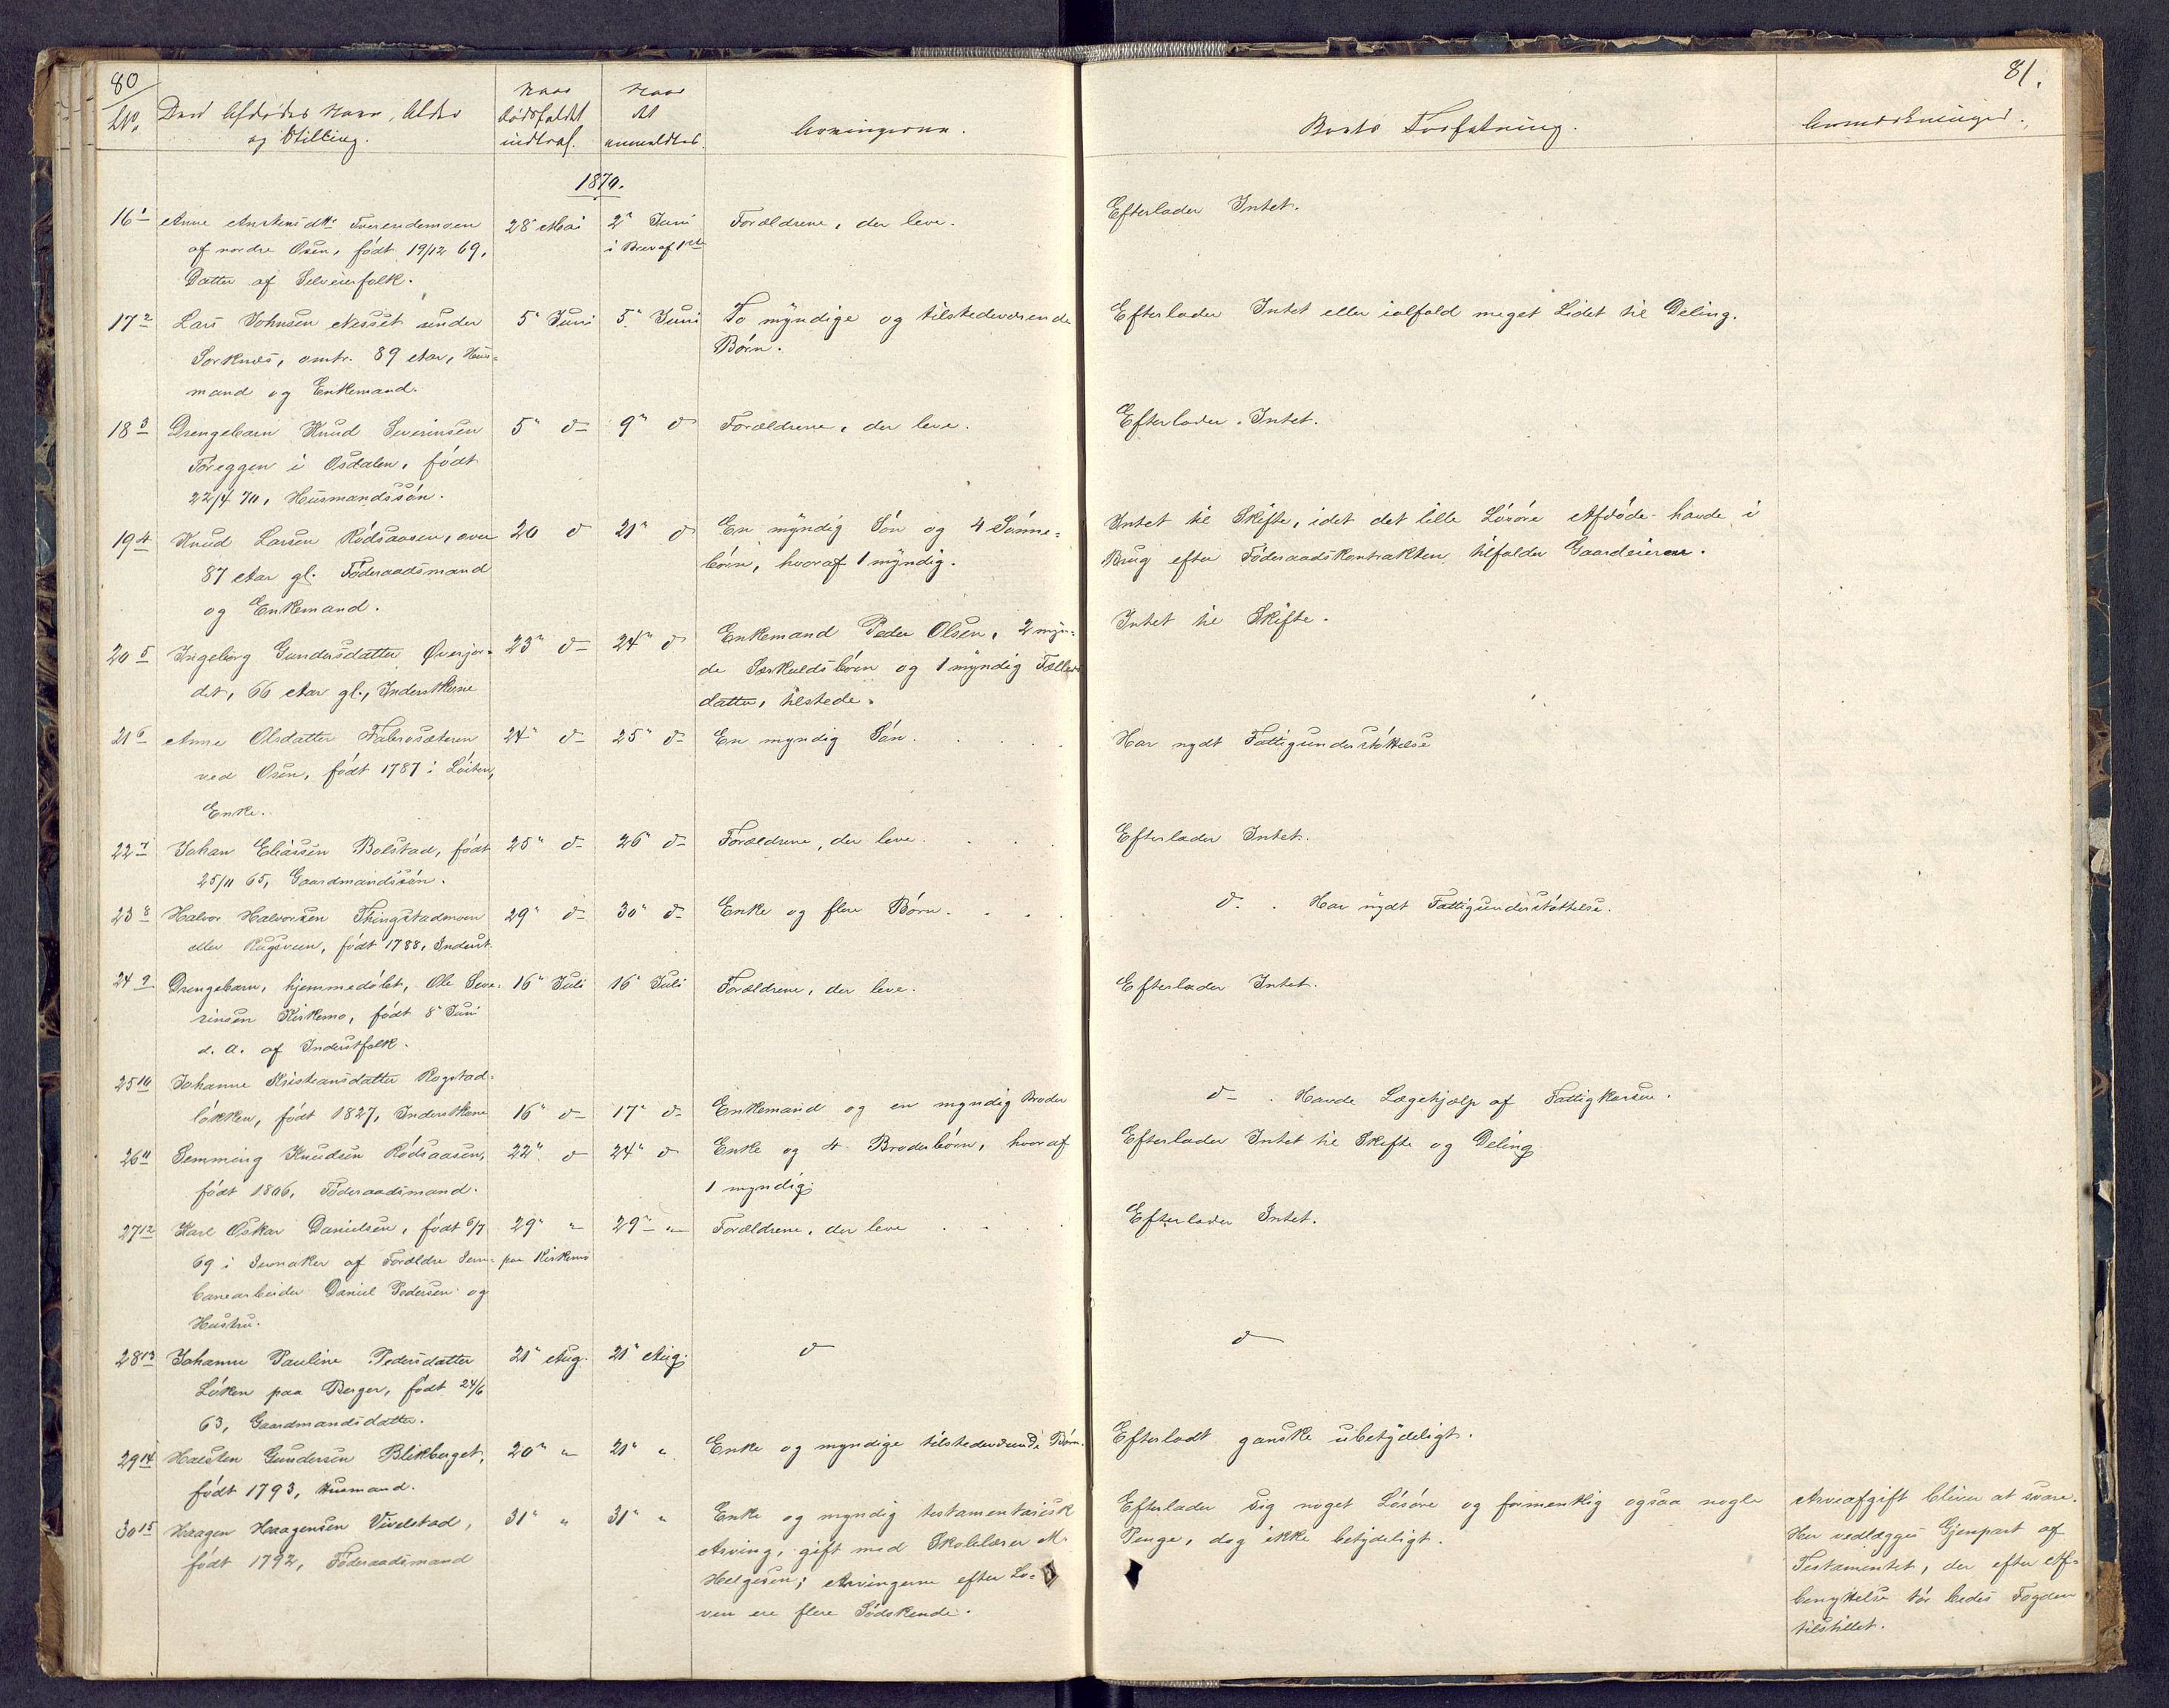 80
81.
No.
Den Afdødes Navn, Alder
og Stilling.
Naar
dødsfaldet
indtraf.
Naar
det
anmeldtes.
Arvingerne.
Boets Forfatning.
Anmærkninger.
1870.
16 1 Anne Amstensdtr
af nordre Osen, født 19/12 69,
Datter af Selveierfolk.
28 Mai
2 Juni
i Brev af 1ste
Forældrene, der leve.
Efterlader Intet.
17 2 Lars Johnsen Nesset under
Sorknes, omtr. 89 Aar, Hus-
mand og Enkemand.
5 Juni
5 Juni
To myndige og tilstedeværende
Børn.
Efterlader Intet eller ialfald meget Lidet til Deling.
18 3 Drengebarn Knud Severinsen
Føreggen i Osdalen, født
22/4 70, Husmandssøn.
5 d
9 d
Forældrene, der leve.
Efterlader Intet.
19 4 Knud Larsen Rødsaasen, over
87 Aar gl. Føderaadsmand
og Enkemand.
20 d
21 d
En myndig Søn og 4 Sønne-
børn, hvoraf 1 myndig.
Intet til Skifte, idet det lille Løsøre Afdøde havde i
Brug efter Føderaadskontrakten tilfalder Gaardeieren.
20 5 Ingeborg Gundersdatter Øverjor-
det, 66 Aar gl., Inderstkone
23 d
24 d
Enkemand Peder Olsen, 2 myn-
de Særkuldsbørn og 1 myndig Fælles
datter, tilstede.
Intet til Skifte.
21 6 Anne Olsdatter
ved Osen, født 1787 i Løiten,
Enke.
24 d
25 d
En myndig Søn.
Har nydt Fattigunderstøttelse
22 7 Johan Eliassen Bolstad, født
25/11 65, Gaardmandssøn.
25 d
26 d
Forældrene, der leve.
Efterlader Intet.
23 8 Halvor Halvorsen Thingstadmoen
eller Rugsveen, født 1788, Inderst.
29 d
30 d
Enke og flere Børn.
d. Har nydt Fattigunderstøttelse.
24 9 Drengebarn, hjemmedøbt, Ole Seve-
rinsen Kirkemo, født 8 Juni
d. A. af Inderstfolk.
16 Juli
16 Juli
Forældrene, der leve.
Efterlader Intet.
25 10 Johanne Kristiansdatter Rogstad-
løkken, født 1827, Inderstkone
16 d
17 d
Enkemand og en myndig Broder
d. Havde Lægehjælp af Fattigkassen.
26 11 Semming Knudsen Rødsaasen,
født 1806, Føderaadsmand.
22 d
24 d
Enke og 4 Broderbørn, hvoraf
1 myndig
Efterlader Intet til Skifte og Deling
27 12 Karl Oskar Danielsen, født 6/7
69 i Jevnaker af Forældre Jern-
banearbeider Daniel Pedersen og
Hustru.
29 "
paa Kirkemo
29 "
Forældrene, der leve
Efterlader Intet.
28 13 Johanne Pauline Pedersdatter
Løken paa Berger, født 24/6
63, Gaardmandsdatter.
21 Aug.
21 Aug.
d
d
29 14 Halsten Gundersen Blikberget,
født 1793, Husmand.
20 "
21 "
Enke og myndige tilstedeværende Børn.
Efterladt ganske ubetydeligt.
30 15 Haagen Haagensen Vivelstad,
født 1792, Føderaadsmand
31 "
31 "
Enke og myndig testamentarisk
Arving, gift med Skolelærer M.
Helgesen; Arvingerne efter Lo-
ven ere flere Sødskende.
Efterlader sig noget Løsøre og formentlig ogsaa nogle
Penge, dog ikke betydeligt.
Arveafgift bliver at svare.
Her vedlægges Gjenpart af
Testamentet, der efter Af-
benyttelse bedes Fogden
tilstillet.